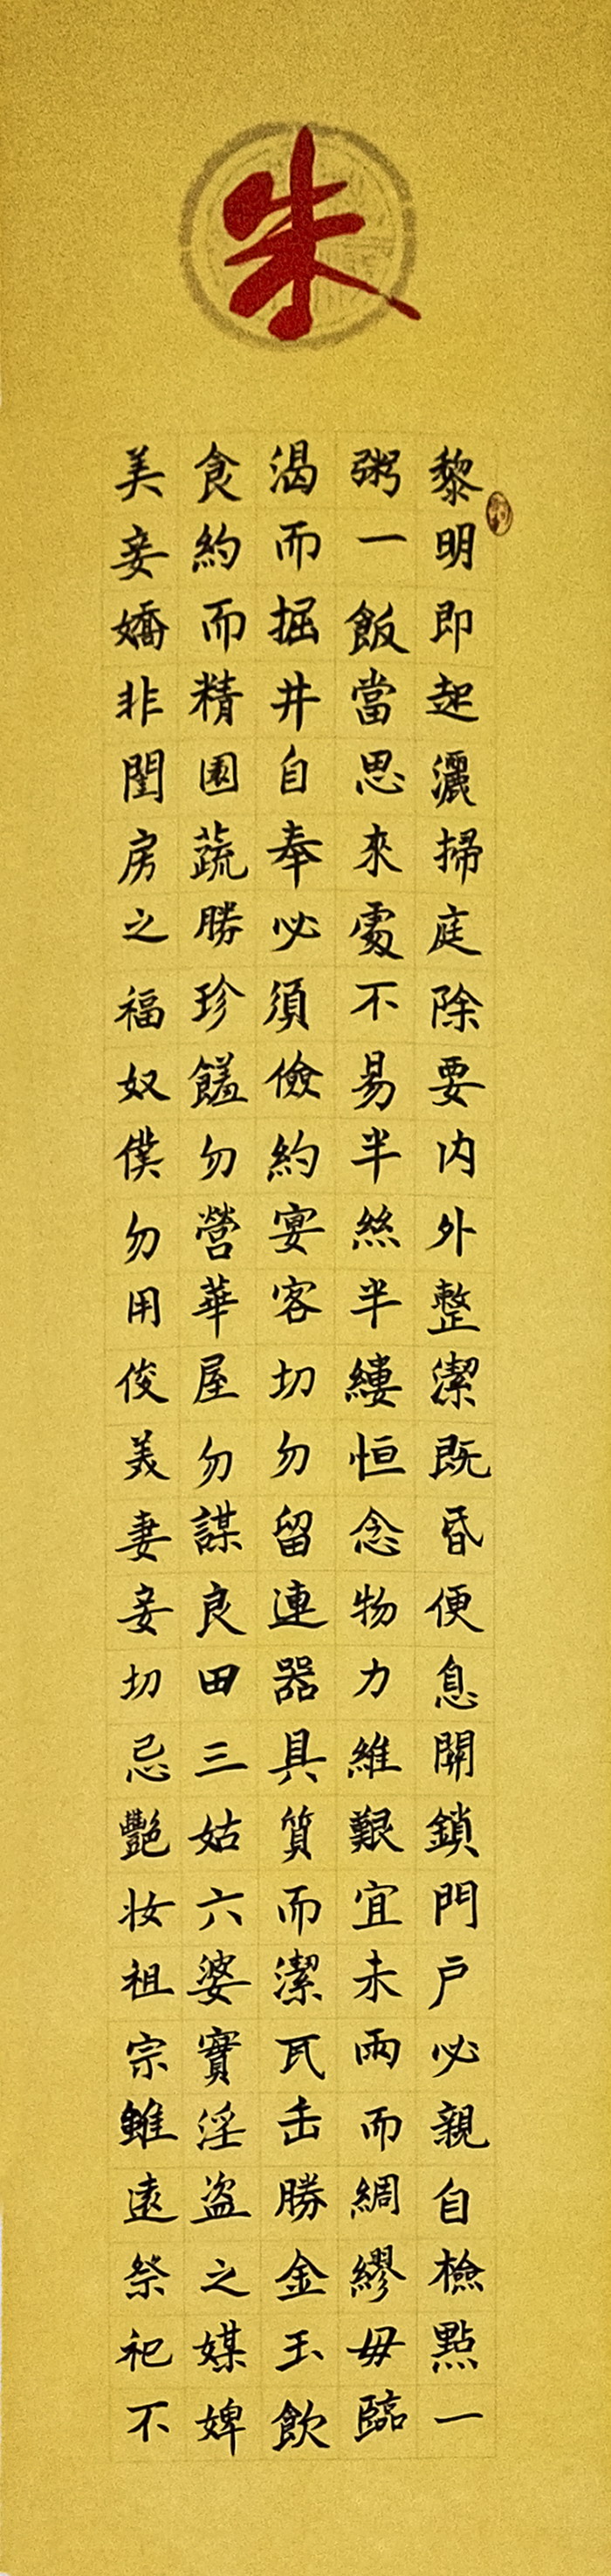 朱
黎明即起灑掃庭除要内外整潔既昏便息開鎖門戶必親自檢點一
粥一飯當思來處不易半絲半縷恒念物力維艱宜未雨而綢繆毋臨
渴而掘井自奉必須儉約宴客切勿留連器具質而潔瓦缶勝金玉飲
食約而精園蔬勝珍饈勿營華屋勿謀良田三姑六婆實淫盜之媒婢
美妾嬌非閨房之福奴僕勿用俊美妻妾切忌艷妆祖宗雖遠祭祀不